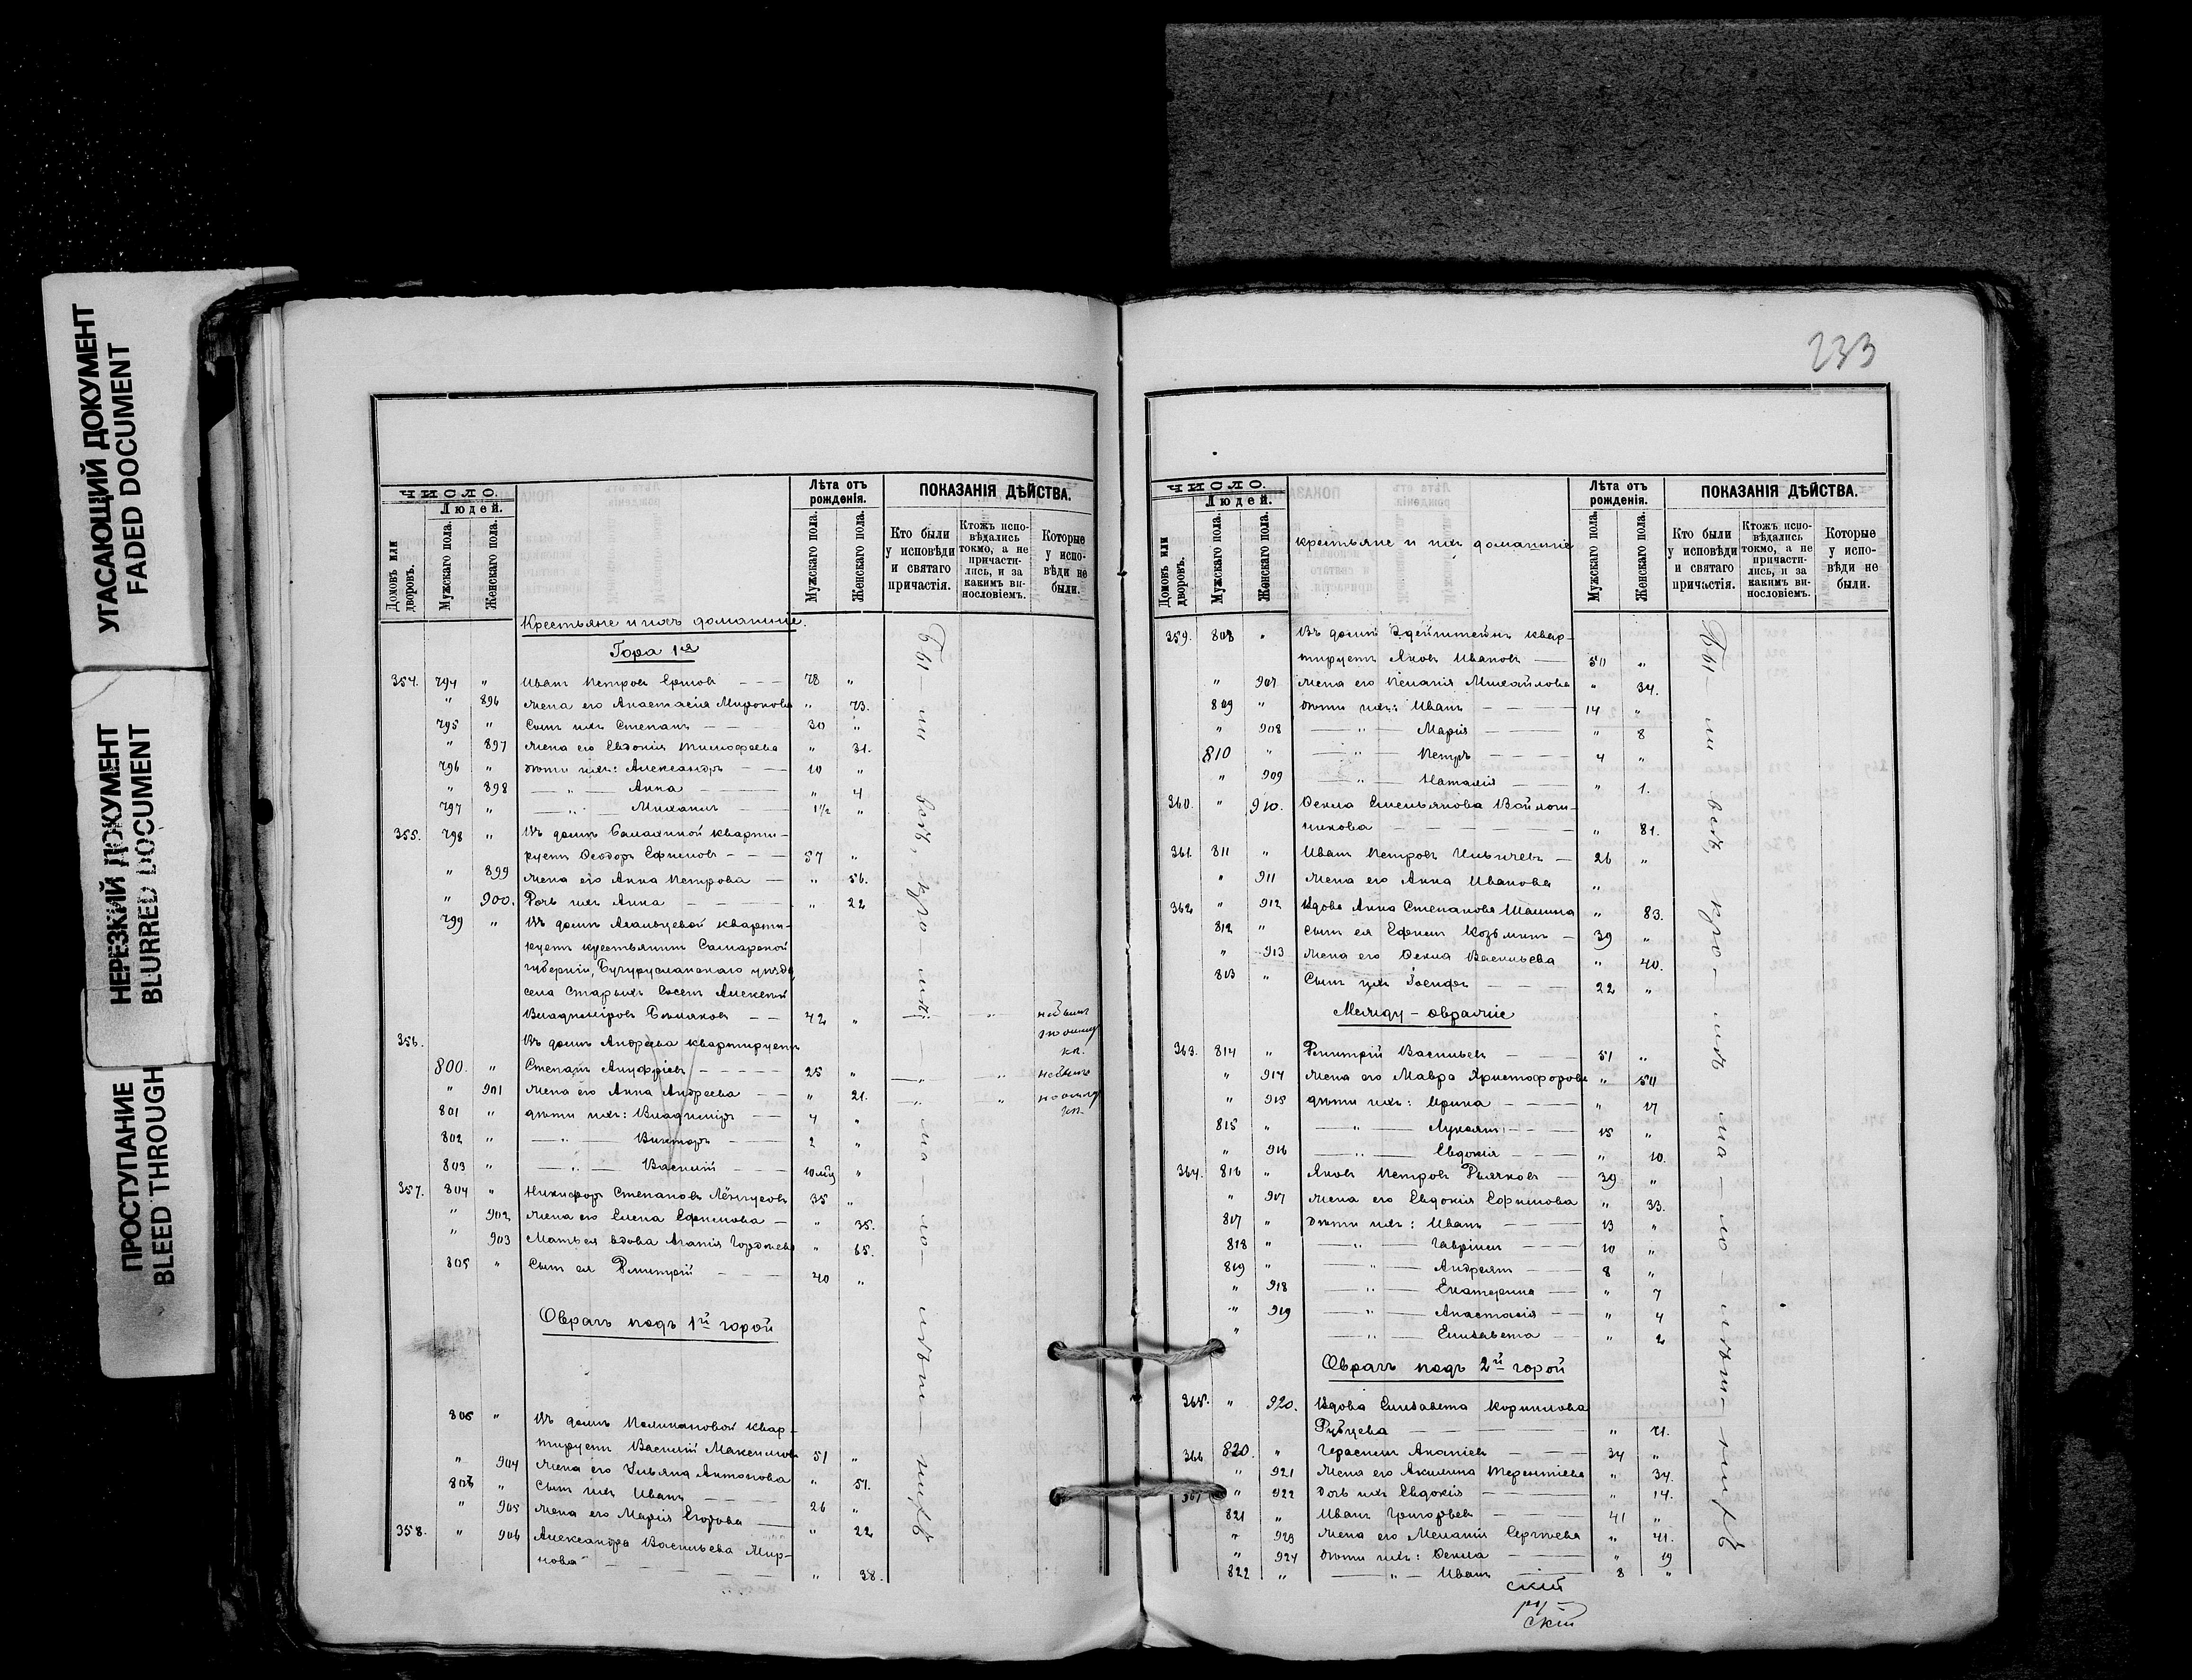 УГАСАЮЩИЙ ДОКУМЕНТ
FADED DOCUMENT
НЕРЕЗКИЙ ДОКУМЕНТ
BLURRED DOCUMENT
ПРОСТУПАНИЕ
BLEED THROUGH
ЧИСЛО.
Людей.
Домовъ или дворовъ.
Мужскаго пола.
Женскаго пола.
Лѣта отъ рожденія.
Мужскаго пола.
Женскаго пола.
ПОКАЗАНІЯ ДѢЙСТВА.
Кто были у исповѣди и святаго причастія.
Ктожъ исповѣдались токмо, а не причастились, и за какимъ винословіемъ.
Которые у исповѣди не были.
Крестьяне и ихъ домашніе.
Гора 1я
354. 794 " Иванъ Петровъ Ершовъ — 78 "
" 896 Жена его Анастасія Миронова " 73.
795 " Сынъ ихъ Степанъ — 30 "
" 897 Жена его Евдокія Тимофеева " 31.
796 " Дѣти ихъ: Александръ — 10 "
" 898 — " — Анна — " 4
797 " — " — Михаилъ — 1½ "
355. 798 " Въ домѣ Балахиной кварти-
руетъ Ѳеодоръ Ефимовъ — 57 "
" 899 Жена его Анна Петрова — " 56.
" 900. Дочь ихъ Анна — " 22
799 " Въ домѣ кварти-
руетъ крестьянинъ Самарской
губерніи, Бугурусланскаго уѣзда
села Старыхъ Сосенъ Алексѣй
Владиміровъ Бѣляковъ — 42 "
356. Въ домѣ Андреева квартируетъ
800. " Степанъ Ануфріевъ — 25 "
" 901 Жена его Анна Андреева — " 21.
801 " Дѣти ихъ: Владиміръ — 4 "
802 " — " — Викторъ — 2 "
803 " — " — Василій — 10 мѣс "
357. 804 " Никифоръ Степановъ 35 "
" 902 Жена его Елена Ефимова — " 35.
" 903 Мать ея вдова Агапія Гордѣева " 65.
805 " Сынъ ея Дмитрій — 40 "
Оврагъ подъ 1й горой
806 " Въ домѣ Поликановой квар-
тируетъ Василій Максимовъ 51 "
" 904 Жена его Ульяна Антонова " 51.
806 " Сынъ ихъ Иванъ — 26 "
" 905 Жена его Марія Егорова — " 22
358. " 906 Александра Васильева Мир-
нова — " 38.
Бы — ли всѣ, кро — мѣ ма — ло — лѣт — нихъ
233
ЧИСЛО.
Людей.
Домовъ или дворовъ.
Мужскаго пола.
Женскаго пола.
крестьяне и ихъ домашніе
Лѣта отъ рожденія.
Мужскаго пола.
Женскаго пола.
ПОКАЗАНІЯ ДѢЙСТВА.
Кто были у исповѣди и святаго причастія.
Ктожъ исповѣдались токмо, а не причастились, и за какимъ винословіемъ.
Которые у исповѣди не были.
359. 808 " Въ домѣ квар-
тируетъ Яковъ Ивановъ — 50 "
" 907 Жена его Михайлова " 34.
809 " Дѣти ихъ: Иванъ — 14 "
" 908 — " — Марія — " 8
810 " — " — Петръ — 4 "
" 909 — " — Наталія — " 1.
360. " 910. Ѳекла Емельянова Войлош-
никова — " 81.
361. 811 " Иванъ Петровъ Ильичевъ — 26 "
" 911 Жена его Анна Иванова "
362 " 912 Вдова Анна Степанова Шашина " 83.
812 " Сынъ ея Ефимъ Козьминъ — 39 "
" 913 Жена его Ѳекла Васильева " 40.
813 " Сынъ ихъ Іосифъ — 22 "
Между-овражіе
363. 814 " Дмитрій Васильевъ — 51 "
" 914 Жена его Мавра Христофорова " 50
" 915 Дѣти ихъ: Ирина — " 17
815 " — " — Лукіянъ — 15 "
" 916 — " — Евдокія — " 10.
364. 816 " Яковъ Петровъ Дьячковъ — 39 "
" 917 Жена его Евдокія Ефимова " 33.
817 " Дѣти ихъ: Иванъ — 13 "
818 " — " — Гавріилъ — 10 "
819 " — " — Андреянъ — 8 "
" 918 — " — Екатерина — " 7
" 919 — " — Анастасія — " 4
" — " — Елизавета — " 2
Оврагъ подъ 2й горой
365. " 920. Вдова Елизавета Корнилова
Рубцева — " 71.
366 820. " Герасимъ Ананіевъ — 34 "
" 921 Жена его Акилина Терентіева " 34.
" 922 Дочь ихъ Евдокія — " 14.
367
821 " Иванъ Григорьевъ — 41 "
" 923 Жена его Меланія Сергѣева " 41.
" 924 Дѣти ихъ: Ѳекла — " 19
822 " — " — Иванъ — 8 "
Бы — ли всѣ, кро — мѣ ма — ло — лѣт — нихъ
скій
скій